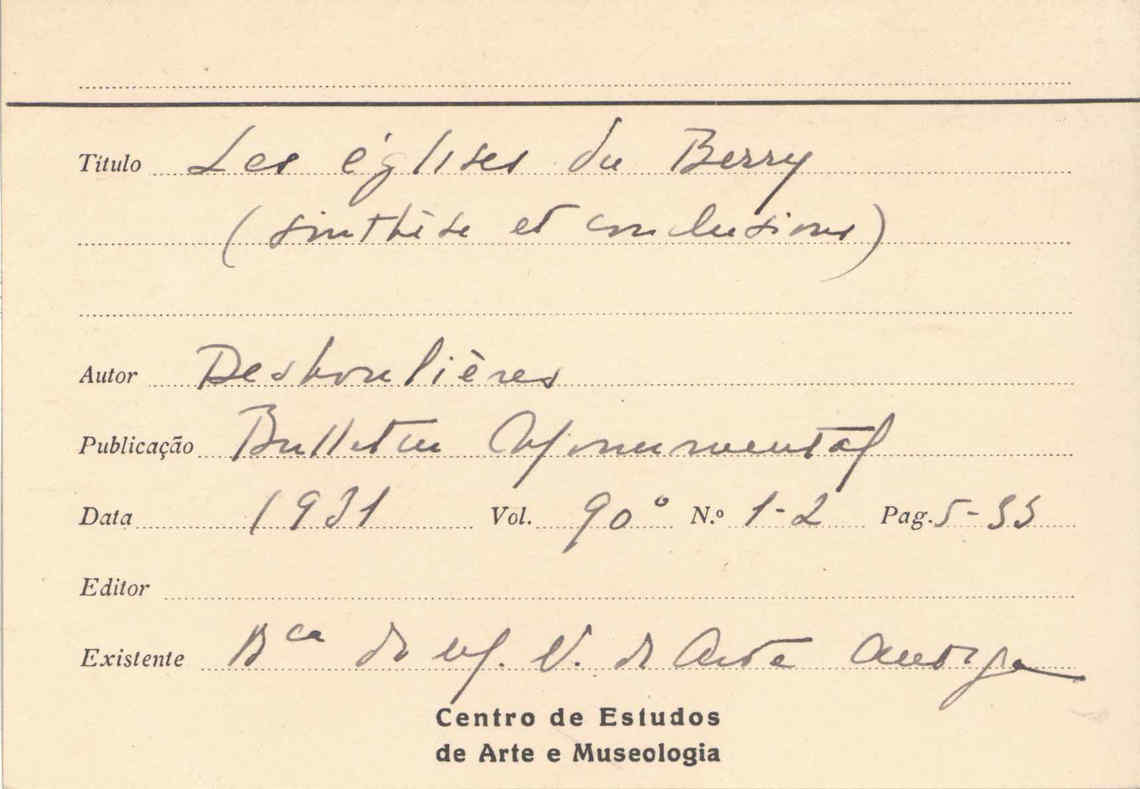 Título Les églises du Berry
(sinthèse et conclusions)
Autor Deshoulières
Publicação Bulletin Monumental
Data 1931 Vol. 90° N.º 1-2 Pag. 5-33
Editor
Existente Bca do M. N. de Arte Antiga
Centro de Estudos
de Arte e Museologia